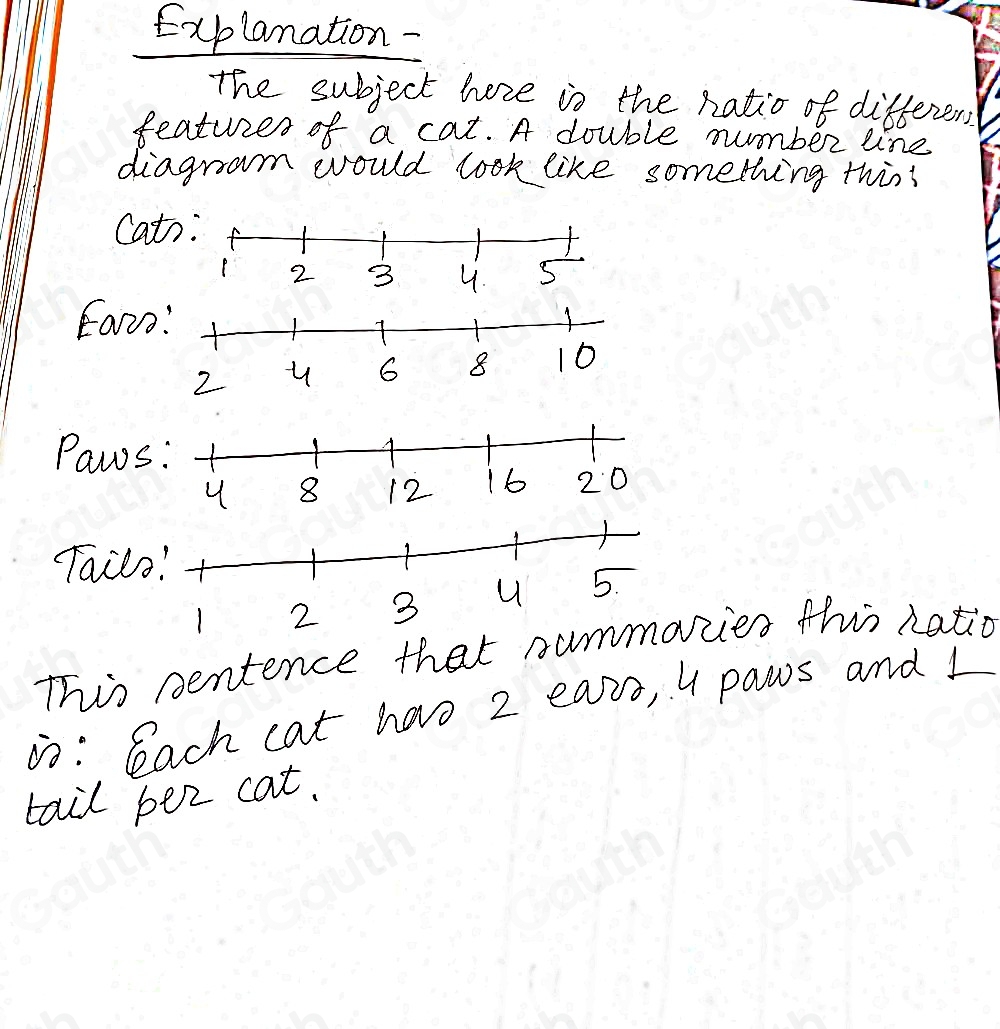 Explanation -
The subject here is the ratio of different
features of a cat. A double number line
diagram would look like something this:
Cats:
1 2 3 4 5
Ears:
2 4 6 8 10
Paws:
4 8 12 16 20
Tails:
1 2 3 4 5.
This sentence that summaries this ratio
is: Each cat has 2 ears, 4 paws and 1
tail per cat.